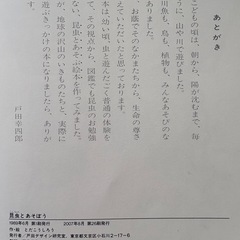 あとがき
こどもの頃は、朝から、陽が沈むまで、毎
うに、山や川で遊びました。
川魚も、鳥も、植物も、みんなあそびのな
ありました。
お蔭でそのなかまたちから、生命の尊さ
えていただいたと思っております。
本は幼い頃、虫と遊んだごく普通の体験を
て、その視点から、図鑑でも昆虫のお勉強
ない、昆虫とあそぶ絵本を作ってみました。
が、地球の沢山のいきものたちと、実際に
遊ぶきっかけの本になりましたら、あり
す。
戸田幸四郎
昆虫とあそぼう
1989年6月 第1刷発行 2007年8月 第26刷発行
作・絵 とだこうしろう
発行者／戸田デザイン研究室、東京都文京区小石川2-17-6